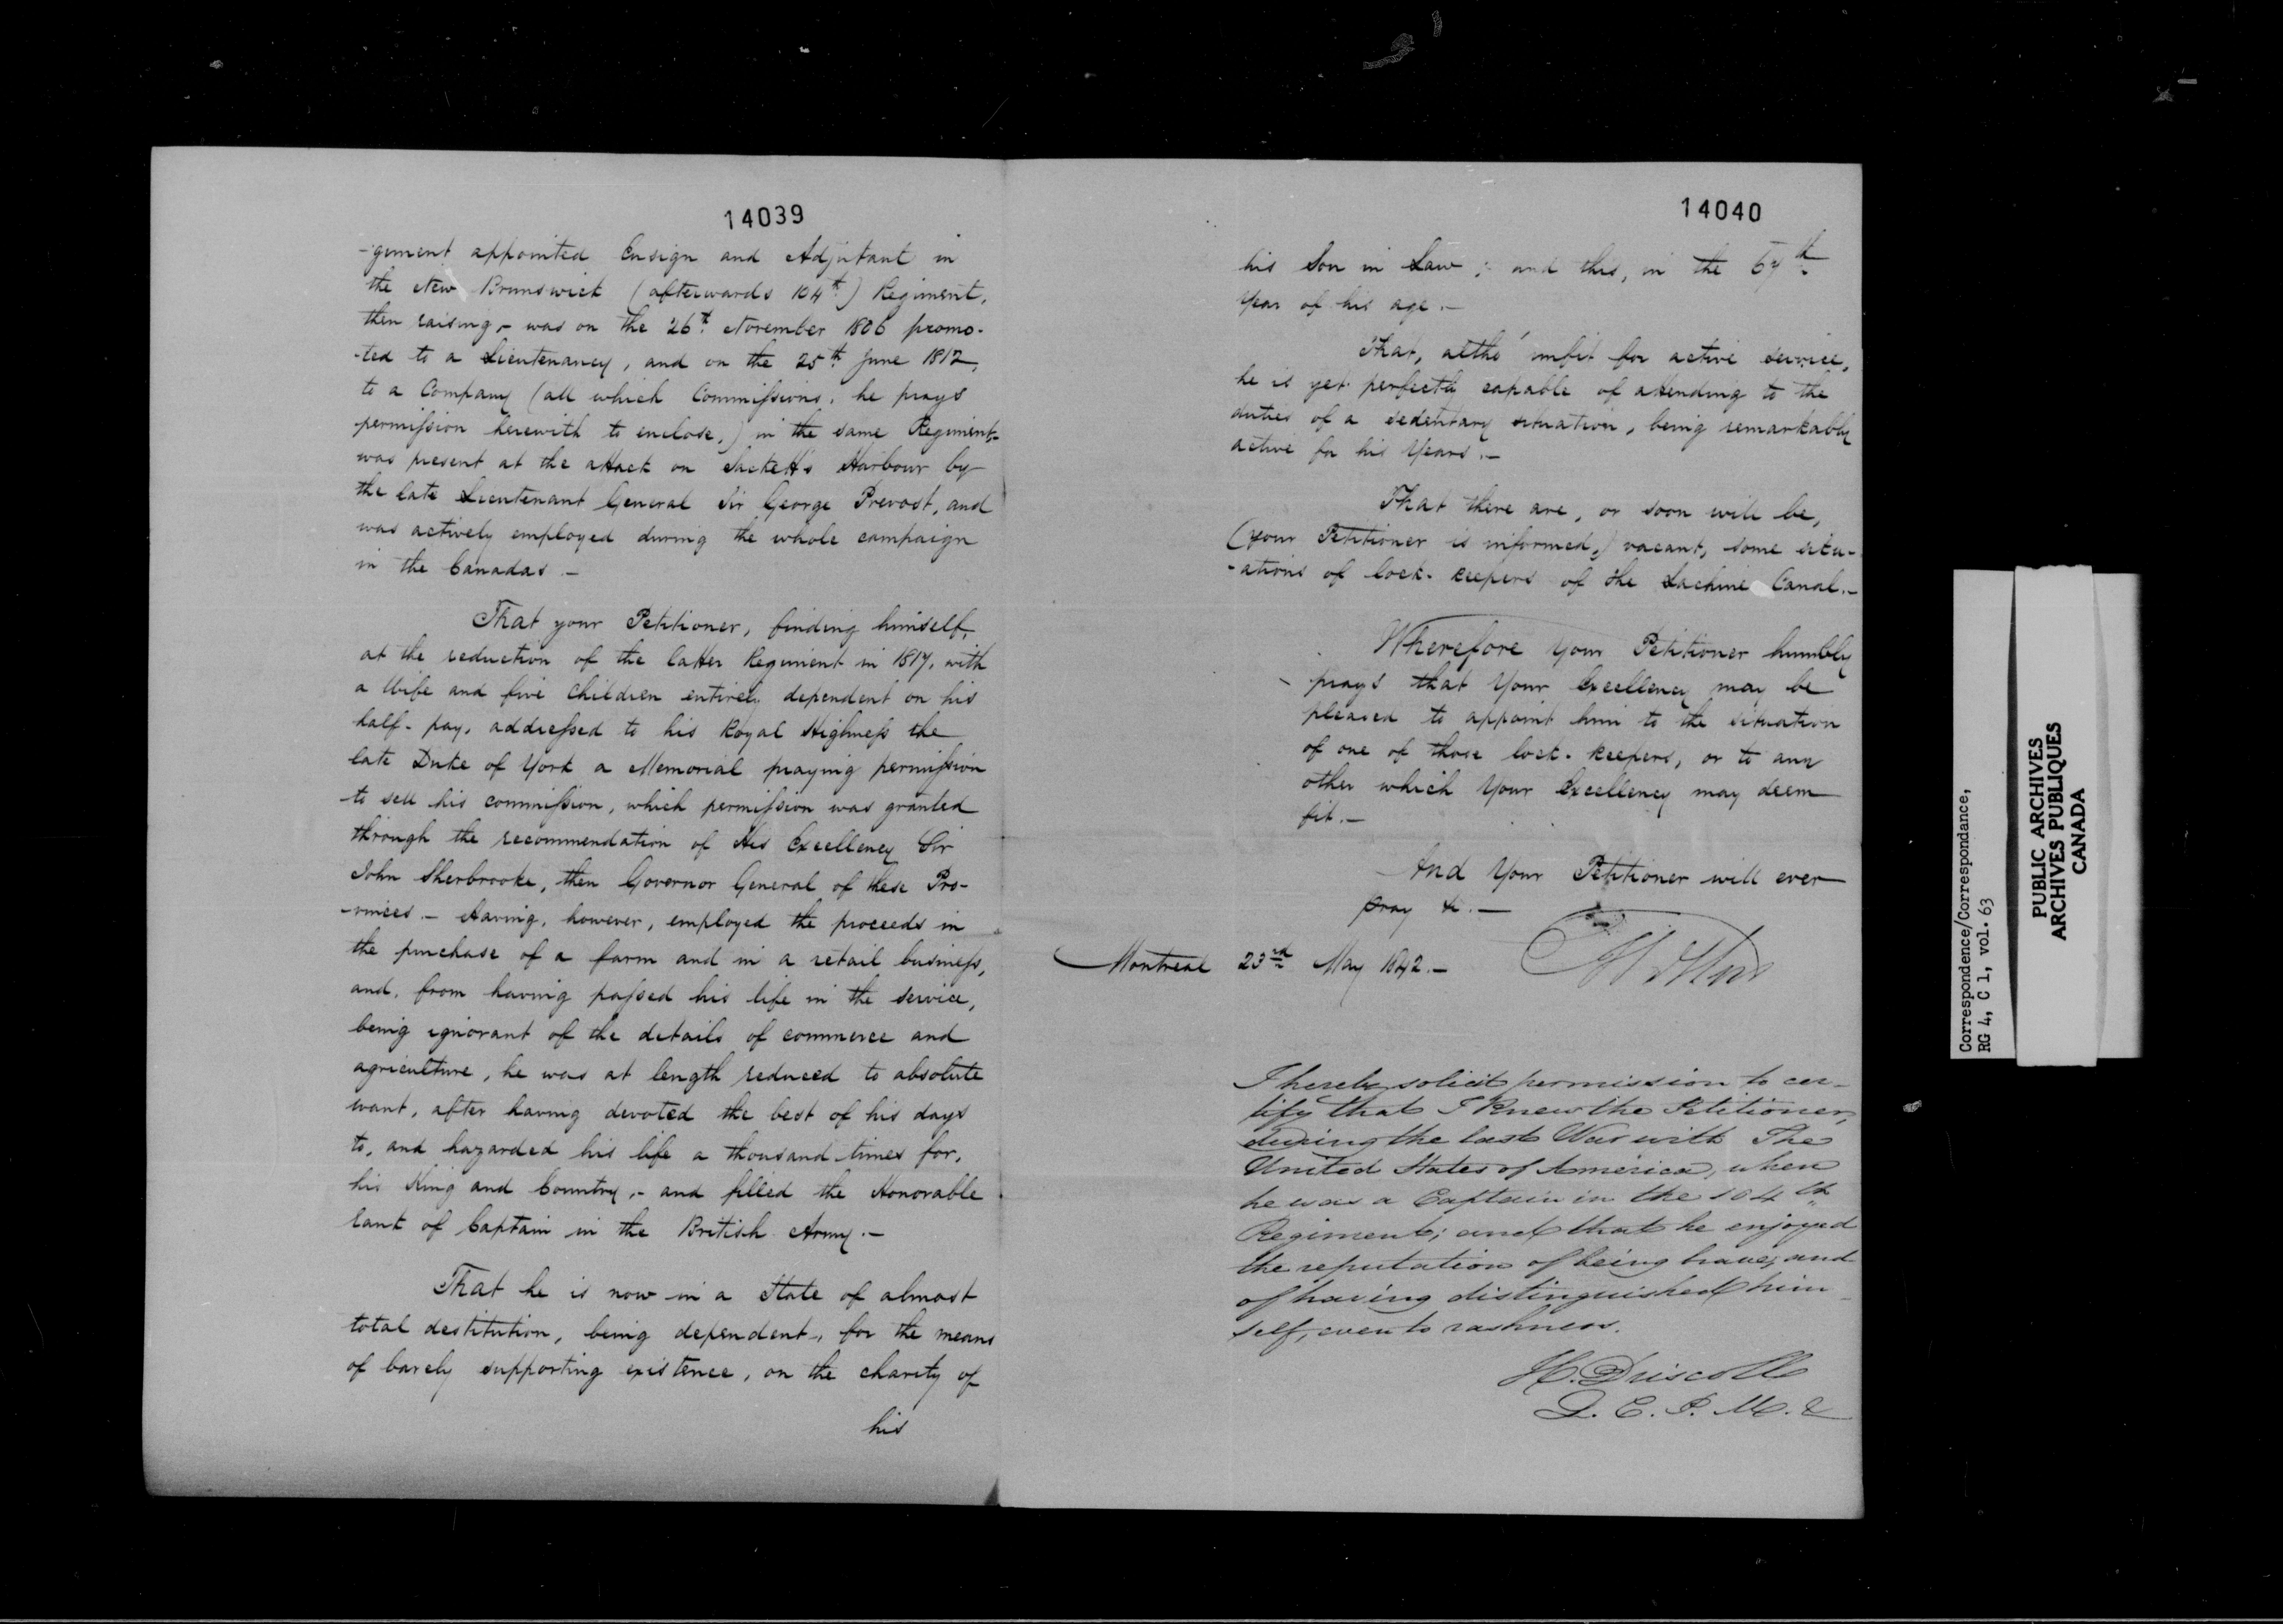 14039
-gement appointed Ensign and Adjutant in
the New Brunswick (afterwards 104th) Regiment,
then raising,- was on the 26th November 1806 promo-
-ted to a Lieutenancy, and on the 25th June 1812,
to a Company (all which Commissions, he prays
permission herewith to enclose,) in the same Regiment-
was present at the attack on Sackett's Harbour by
the late Lieutenant General Sir George Prevost, and
was actively employed during the whole campaign
in the Canadas.-
That your Petitioner, finding himself,
at the reduction of the latter Regiment in 1817, with
a Wife and five children entirely dependent on his
half-pay, addressed to his Royal Highness the
late Duke of York a Memorial praying permission
to sell his commission, which permission was granted
through the recommendation of His Excellency Sir
John Sherbrooke, then Governor General of these Pro-
-vinces.- Having, however, employed the proceeds in
the purchase of a farm and in a retail business,
and, from having passed his life in the service,
being ignorant of the details of commerce and
agriculture, he was at length reduced to absolute
want, after having devoted the best of his days
to, and hazarded his life a thousand times for,
his King and Country,- and filled the Honorable
rank of Captain in the British Army.-
That he is now in a State of almost
total destitution, being dependent, for the means
of barely supporting existence, on the charity of
his
14040
his Son in Law; and this, in the 67th
Year of his age.-
That, altho' unfit for active service,
he is yet perfectly capable of attending to the
duties of a sedentary situation, being remarkably
active for his Years.-
That there are, or soon will be,
(your Petitioner is informed,) vacant, some situ-
-ations of lock-keepers of the Lachine Canal.-
Wherefore your Petitioner humbly
prays that Your Excellency may be
pleased to appoint him to the situation
of one of those lock-keepers, or to any
other which Your Excellency may deem
fit.-
And Your Petitioner will ever
pray &c.-
Montreal 23rd May 1842.-
I hereby solicit permission to cer-
tify that I knew the Petitioner,
during the last War with The
United States of America, when
he was a Captain in the 104th
Regiment; and that he enjoyed
the reputation of being brave, and
of having distinguished him-
self, even to rashness.
H. Driscoll
Correspondence/Correspondance,
RG 4, C 1, vol. 63
PUBLIC ARCHIVES
ARCHIVES PUBLIQUES
CANADA